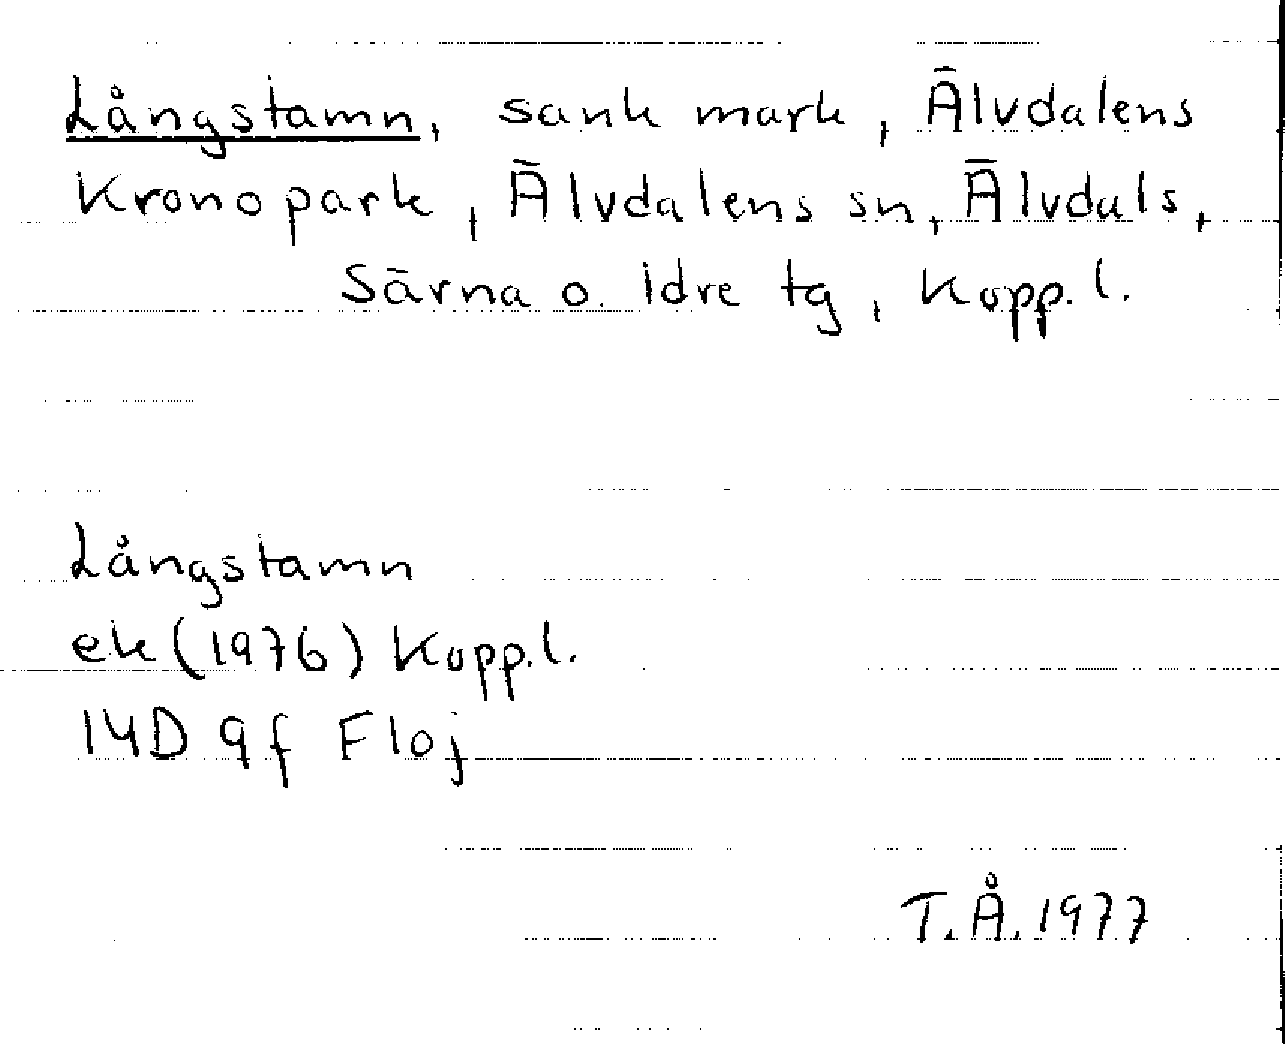 Långstamn, sank mark, Älvdalens
Kronopark, Älvdalens sn, Älvdals,
Särna o. Idre tg, Kopp.l.
Långstamn
ek (1976) Kopp.l.
14D 9f Floj
T.Å. 1977